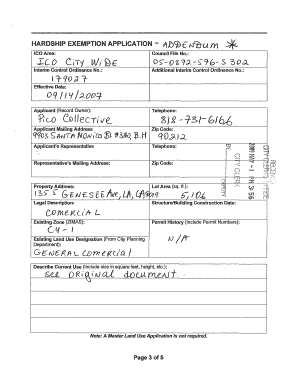 HARDSHIP EXEMPTION APPLICATION - ADDENDUM *
ICO Area: Council File No.:
ICO CITY WIDE 05-0872-576-S302
Interim Control Ordinance No.: Additional Interim Control Ordinance No.:
179027
Effective Date:
09/14/2007
Applicant (Record Owner): Telephone:
PICO Collective 818-731-6166
Applicant Mailing Address Zip Code:
9903 SANTA MONICA Bl #382 B.H 90212
Applicant's Representative Telephone:
Representative's Mailing Address: Zip Code:
BY
CITY CLERK
DEPUTY
PM 3:56
Property Address: Lot Area (sq. ft.):
1355 S GENESEE AVE, LA, CA 5,106
Legal Description: Structure/Building Construction Date:
COMERCIAL
Existing Zone (ZIMAS): Permit History (Include Permit Numbers):
C4-1
Existing Land Use Designation (From City Planning Department): N/A
GENERAL COMERCIAL
Describe Current Use (Include size in square feet, height, etc.):
see ORIGINAL document
Note: A Master Land Use Application is not required.
Page 3 of 5